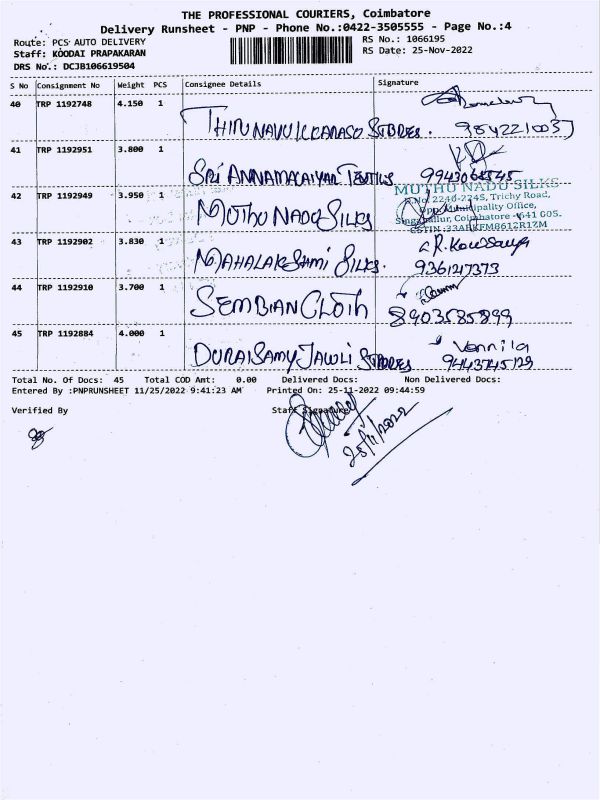 THE PROFESSIONAL COURIERS, Coimbatore
Delivery Runsheet - PNP - Phone No.:0422-3505555 - Page No.:4
Route: PCS AUTO DELIVERY RS No.: 1066195
Staff: KOODAI PRAPAKARAN RS Date: 25-Nov-2022
DRS No.: DCJB106619504
S No Consignment No Weight PCS Consignee Details Signature
40 TRP 1192748 4.150 1
THIRUNAVUKKARASU STORES.
41 TRP 1192951 3.800 1
SRI ANNAMALAIYAR TEXTILS
42 TRP 1192949 3.950 1 MUTHU NADU SILKS
No: 2240-2245, Trichy Road,
Opp. Municipality Office,
Singanallur, Coimbatore - 641 005.
MUTHU NADU SILKS
43 TRP 1192902 3.830 1 R. Kowsalya
MAHALAKSHMI SILKS.
44 TRP 1192910 3.700 1
SEMBIAN CLOTH 8903585899
45 TRP 1192884 4.000 1 Vennila
DURAISAMY JAWLI STORES 9443745129
Total No. Of Docs: 45 Total COD Amt: 0.00 Delivered Docs: Non Delivered Docs:
Entered By :PNPRUNSHEET 11/25/2022 9:41:23 AM Printed On: 25-11-2022 09:44:59
Verified By Staff Signature
25/11/2022